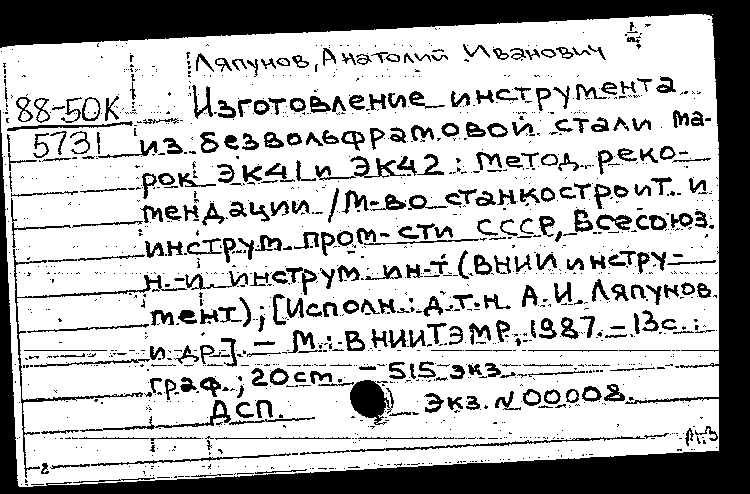 Ляпунов, Анатолий Иванович
88-50К
5731
Изготовление инструмента
из безвольфрамовой стали ма-
рок ЭК41 и ЭК42 : метод. реко-
мендации / М-во станкостроит. и
инструм. пром-сти СССР, Всесоюз.
н.-и. инструм. ин-т (ВНИИ инстру-
мент) ; [Исполн.: д.т.н. А.И. Ляпунов
и др]. - М. : ВНИИТЭМР, 1987. - 13 с. :
граф. ; 20 см. - 515 экз.
ДСП. Экз. N 00008.